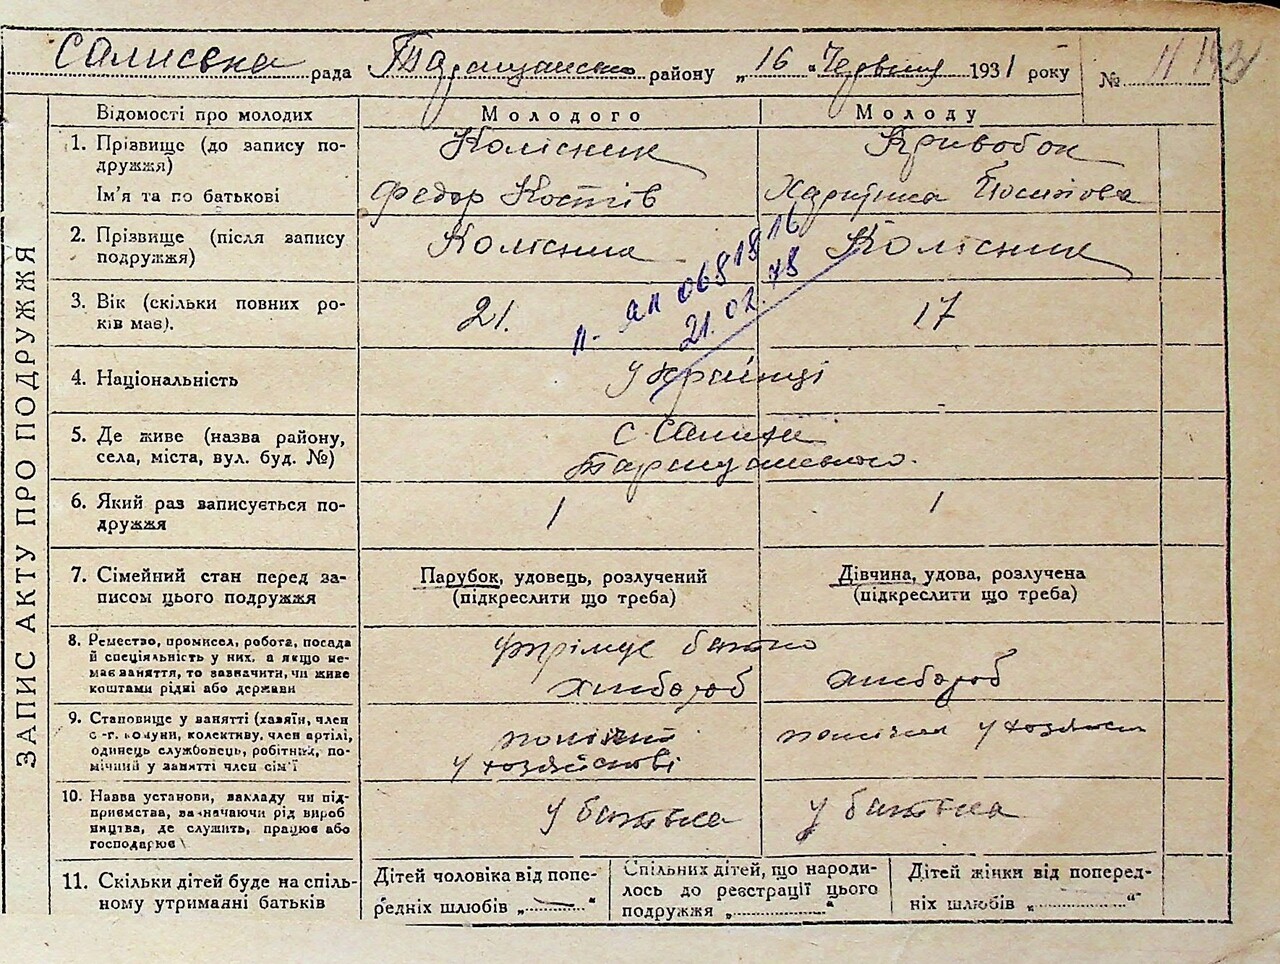 Салиська рада Таращанського району „16 „ Червня 1931 року № 11
ЗАПИС АКТУ ПРО ПОДРУЖЖЯ
Відомості про молодих
Молодого
Молоду
1. Прізвище (до запису по-
дружжя)
Колісник
Кривобок
Ім'я та по батькові
Федор Костів
Йосипова
2. Прізвище (після запису
подружжя)
Колісник
Колісник
3. Вік (скільки повних ро-
ків має).
21.
17
п. ЯП 068 18 16
21.02.78
4. Національність
українці
5. Де живе (назва району,
села, міста, вул. буд. №)
с. Салиха
Таращанського.
6. Який раз записується по-
дружжя
1
1
7. Сімейний стан перед за-
писом цього подружжя
Парубок, удовець, розлучений
(підкреслити що треба)
Дівчина, удова, розлучена
(підкреслити що треба)
8. Ремество, промисел, робота, посада
й спеціяльність у них, а якщо не-
має заняття, то зазначити, чи живе
коштами рідні або держави
батько
хлібороб
хлібороб
9. Становище у занятті (хазяїн, член
с.-г. комуни, колективу, член артілі,
одинець службовець, робітник, по-
мічний у занятті член сім'ї
у хозяйстві
у хозяйст
10. Назва установи, закладу чи під-
приємства, зазначаючи рід вироб
ництва, де служить, працює або
господарює
у батька
у батька
11. Скільки дітей буде на спіль-
ному утриманні батьків
Дітей чоловіка від попе-
редніх шлюбів „—“
Спільних дітей, що народи-
лось до реєстрації цього
подружжя „ “
Дітей жінки від поперед-
ніх шлюбів „ “